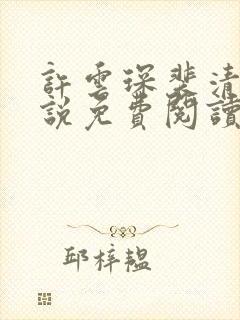 許雲琛裴清
說免費閱讀
邱梓韞